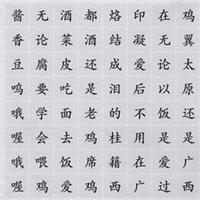 酱无酒都烙印在鸡
香论菜酒结凝无翼
豆腐皮还成爱论太
鸣要吃是泪后以原
哦学面老的不饭还
喔会去鸡桂用是是
哦喂饭席籍在爱广
喔鸡爱鸡西广过西